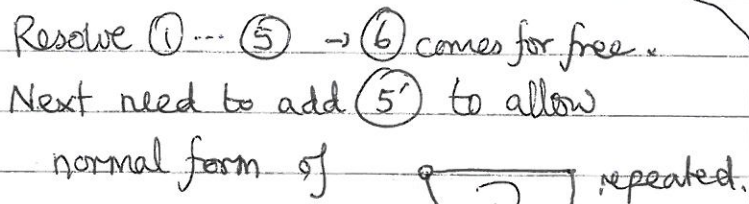 Resolve ① --- ⑤ → ⑥ comes for free.
Next need to add (5') to allow
normal form of repeated.